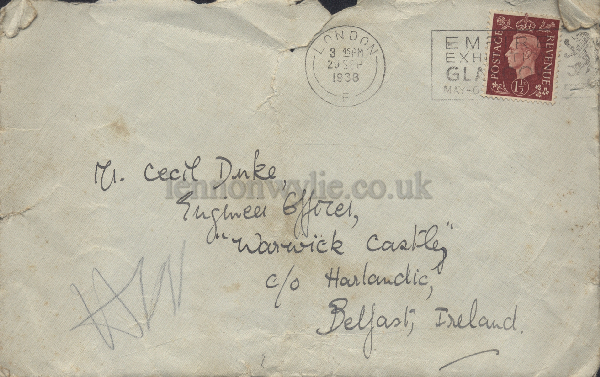 LONDON
3 15PM
20 SEP
1938
F
EM
EXHI
GLA
MAY-O
POSTAGE REVENUE
1½
Mr. Cecil Duke,
Engineer Officer,
"Warwick Castle,"
c/o Harlandic,
Belfast, Ireland.
lennonwylie.co.uk